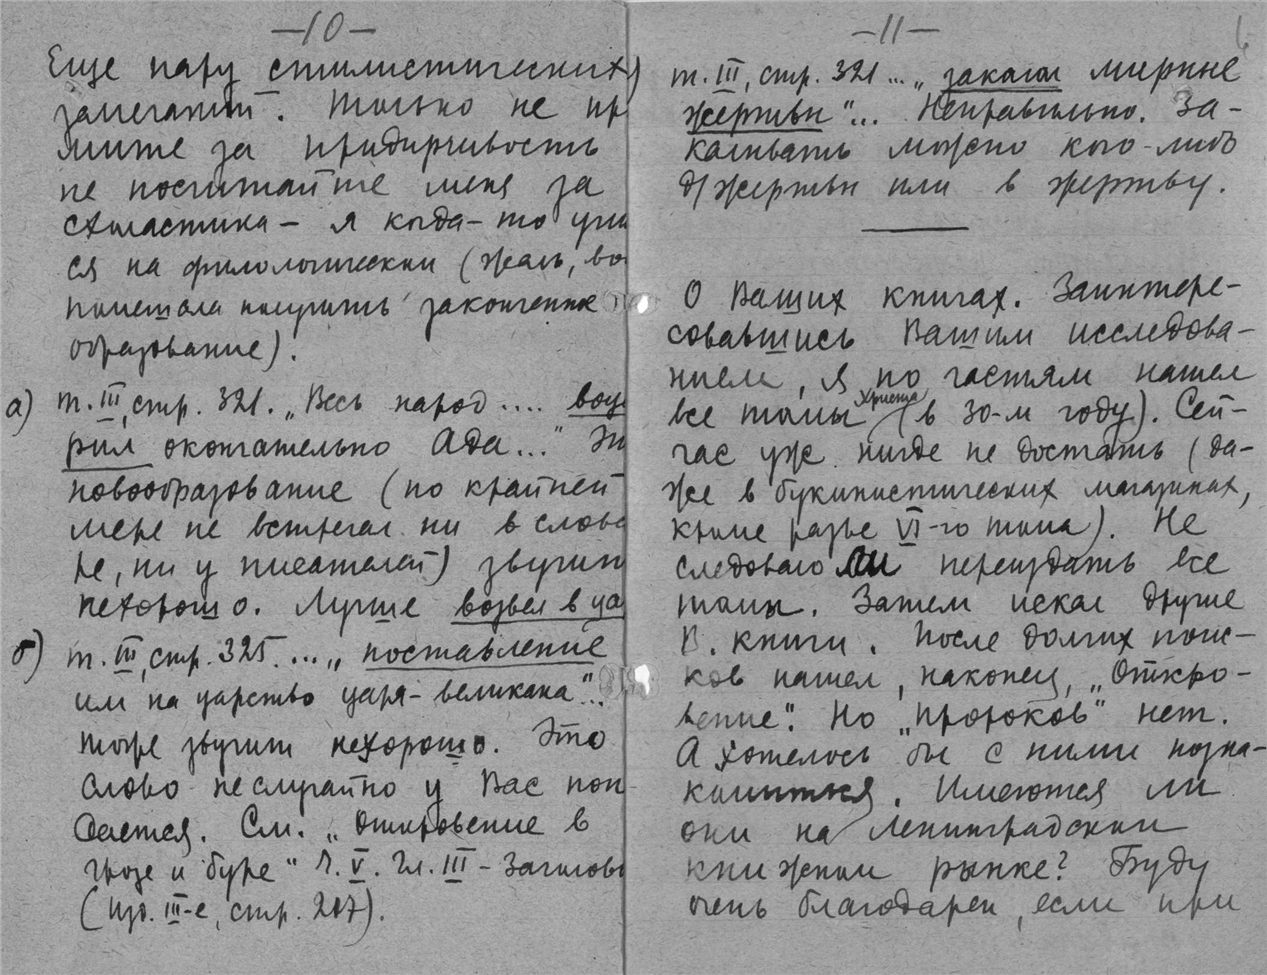 —10—
Еще пару стилистических
замечаний. Только не пр
мите за придирчивость
не посчитайте меня за
схоластика — я когда-то учи
ся на филологическом (жаль, во
помешала получить законченное
образование).
а) т. III, стр. 321. „Весь народ .... воца
рил окончательно Ада..." Эт
новообразование (по крайней
мере не встречал ни в слова
ре, ни у писателей) звучит
нехорошо. Лучше возвел в ца
б) т. III, стр. 325. ...„ поставление
им на царство царя-великана"...
тоже звучит нехорошо. Это
слово неслучайно у Вас поп
дается. См. „Откровение в
грозе и буре" Ч. V. Гл. III - Заголов
(Изд. III-е, стр. 207).
—11—
6
т. III, стр. 321 ... „закалал мирные
жертвы"... Неправильно. За-
калывать можно кого-либо
д/жертвы или в жертву.
О Ваших книгах. Заинтере-
совавшись Вашим исследова-
нием, я по частям нашел
все томы Христа (в 30-м году). Сей-
час уж нигде не достать (да-
же в букинистических магазинах,
кроме разве VI-го тома). Не
следовало ли переиздать все
томы. Затем искал другие
В. книги. После долгих поис-
ков нашел, наконец, „Откро-
вение". Но „Пророков" нет.
А хотелось бы с ними позна-
комиться. Имеются ли
они на Ленинградском
книжном рынке? Буду
очень благодарен, если при